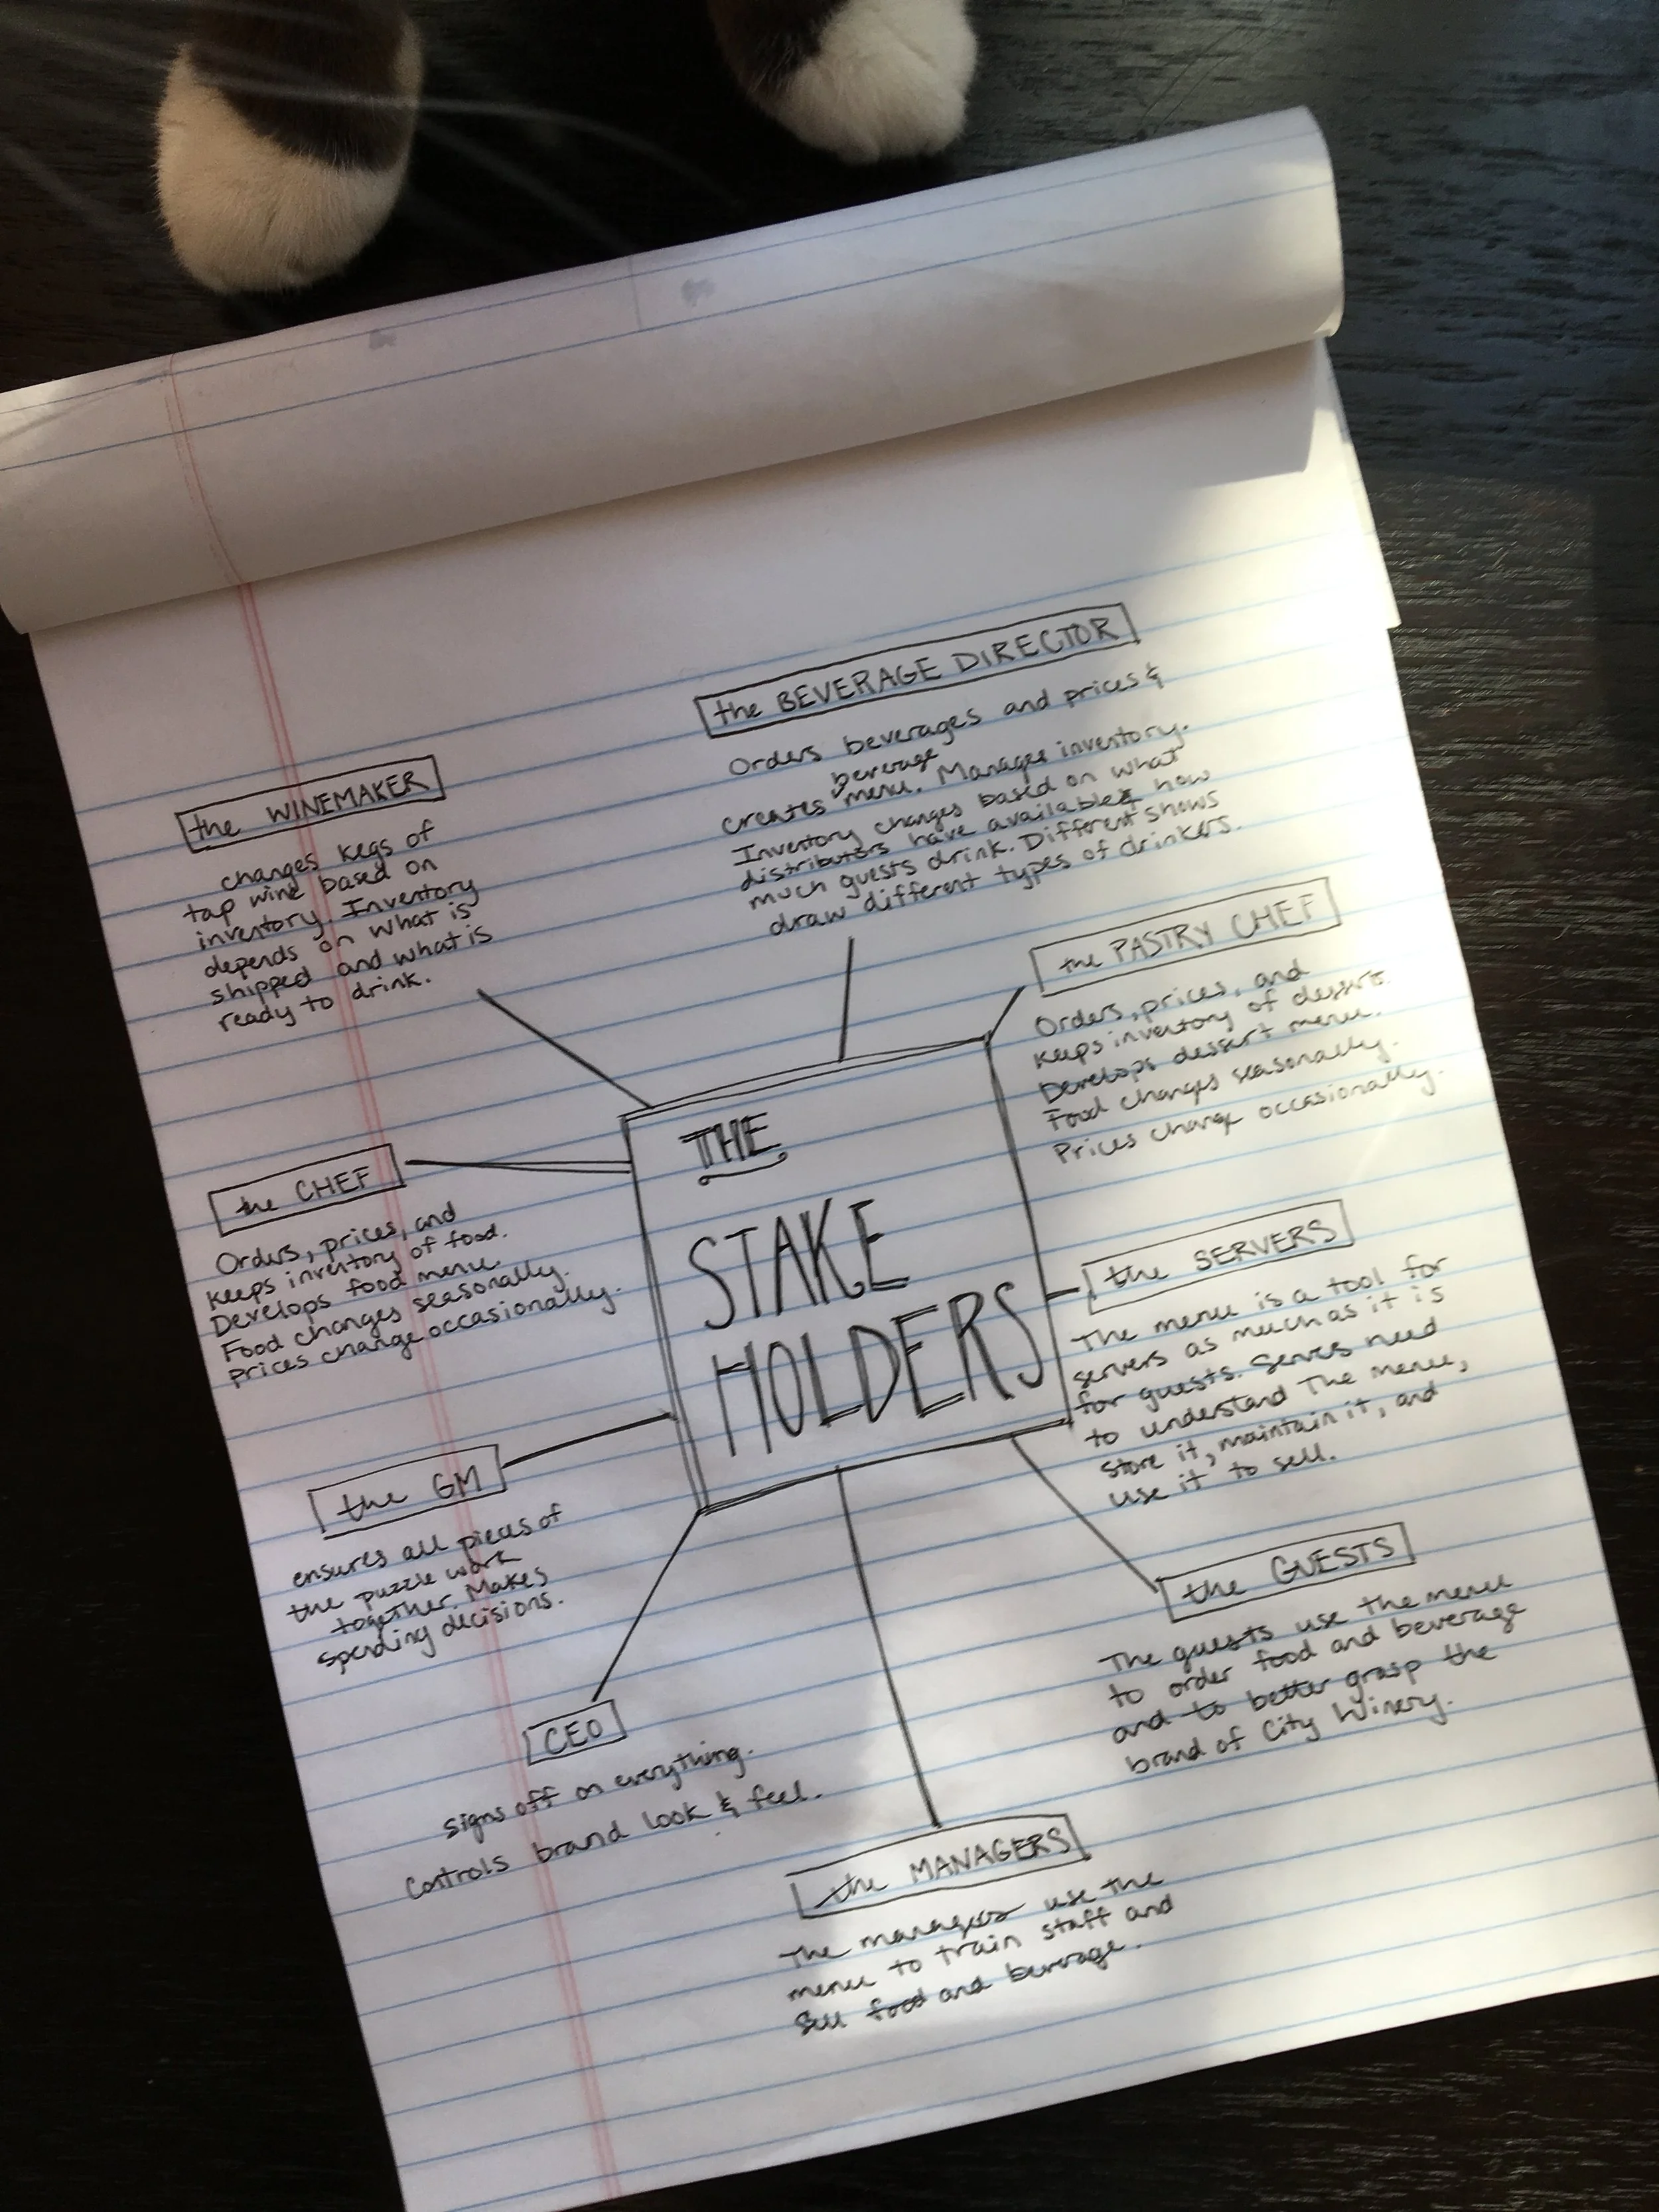 the BEVERAGE DIRECTOR
Orders beverages and prices &
beverage
creates menu. Manages inventory.
Inventory changes based on what
distributors have available & how
much guests drink. Different shows
draw different types of drinkers.
the WINEMAKER
changes kegs of
tap wine based on
inventory. Inventory
depends on what is
shipped and what is
ready to drink.
the PASTRY CHEF
Orders, prices, and
keeps inventory of desserts.
Develops dessert menu.
Food changes seasonally.
Prices change occasionally.
THE
STAKE
HOLDERS
the CHEF
Orders, prices, and
keeps inventory of food.
Develops food menu.
Food changes seasonally.
Prices change occasionally.
the SERVERS
The menu is a tool for
servers as much as it is
for guests. Servers need
to understand the menu,
store it, maintain it, and
use it to sell.
the GM
ensures all pieces of
the puzzle work
together. Makes
spending decisions.
the GUESTS
The guests use the menu
to order food and beverage
and to better grasp the
brand of City Winery.
CEO
signs off on everything.
Controls brand look & feel.
the MANAGERS
The managers use the
menu to train staff and
sell food and beverage.